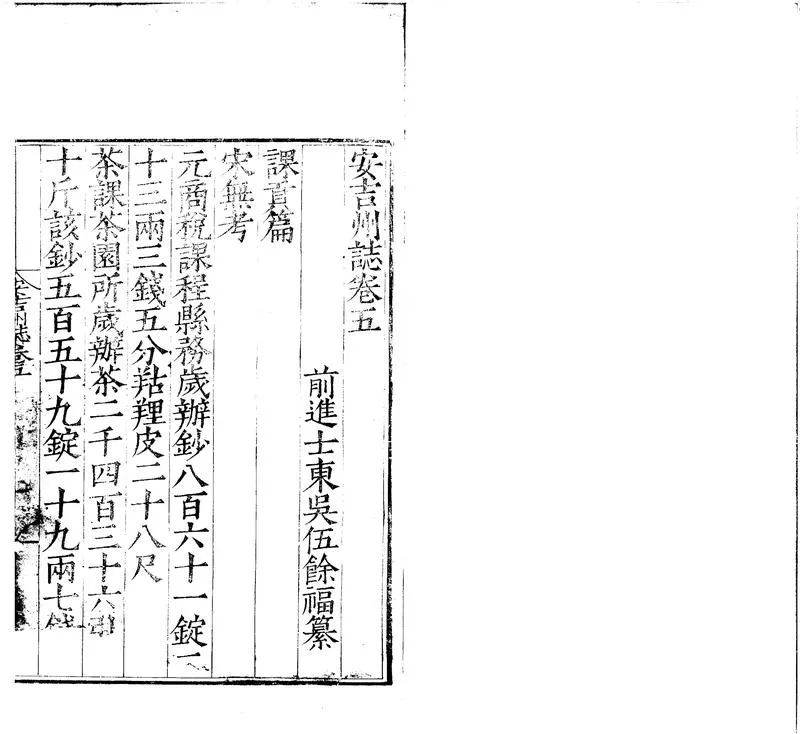 安吉州誌卷五
前進士東吳伍餘福纂
課貢篇
宋無考
元商稅課程縣務歲辦鈔八百六十一錠二
十三兩三錢五分羖䍽皮二十八尺
茶課茶園所歲辦茶二千四百三十六引
十斤該鈔五百五十九錠一十九兩七錢
安吉州誌卷五